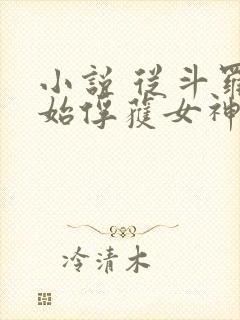 小說 從斗羅
始俘獲女神
冷清木